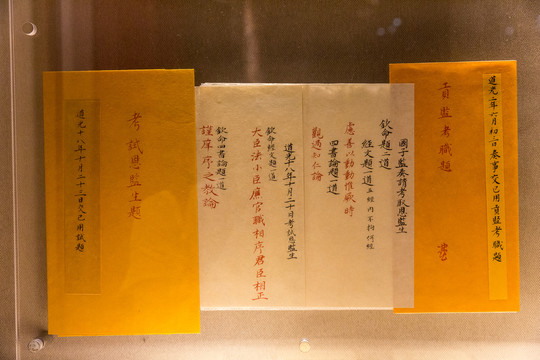 道光二年六月初三日奏事交已用貢監考職題
貢監考職題
國子監奏請考取恩監生
欽命題二道
經文題一道五經內不拘何經
慮善以動動惟厥時
四書論題一道
觀過知仁論
道光十八年十月二十日考試恩監生
欽命經文題一道
大臣法小臣廉官職相序君臣相正
欽命四書論題一道
謹庠序之教論
考試恩監生題
道光十八年十月二十二日交已用試題